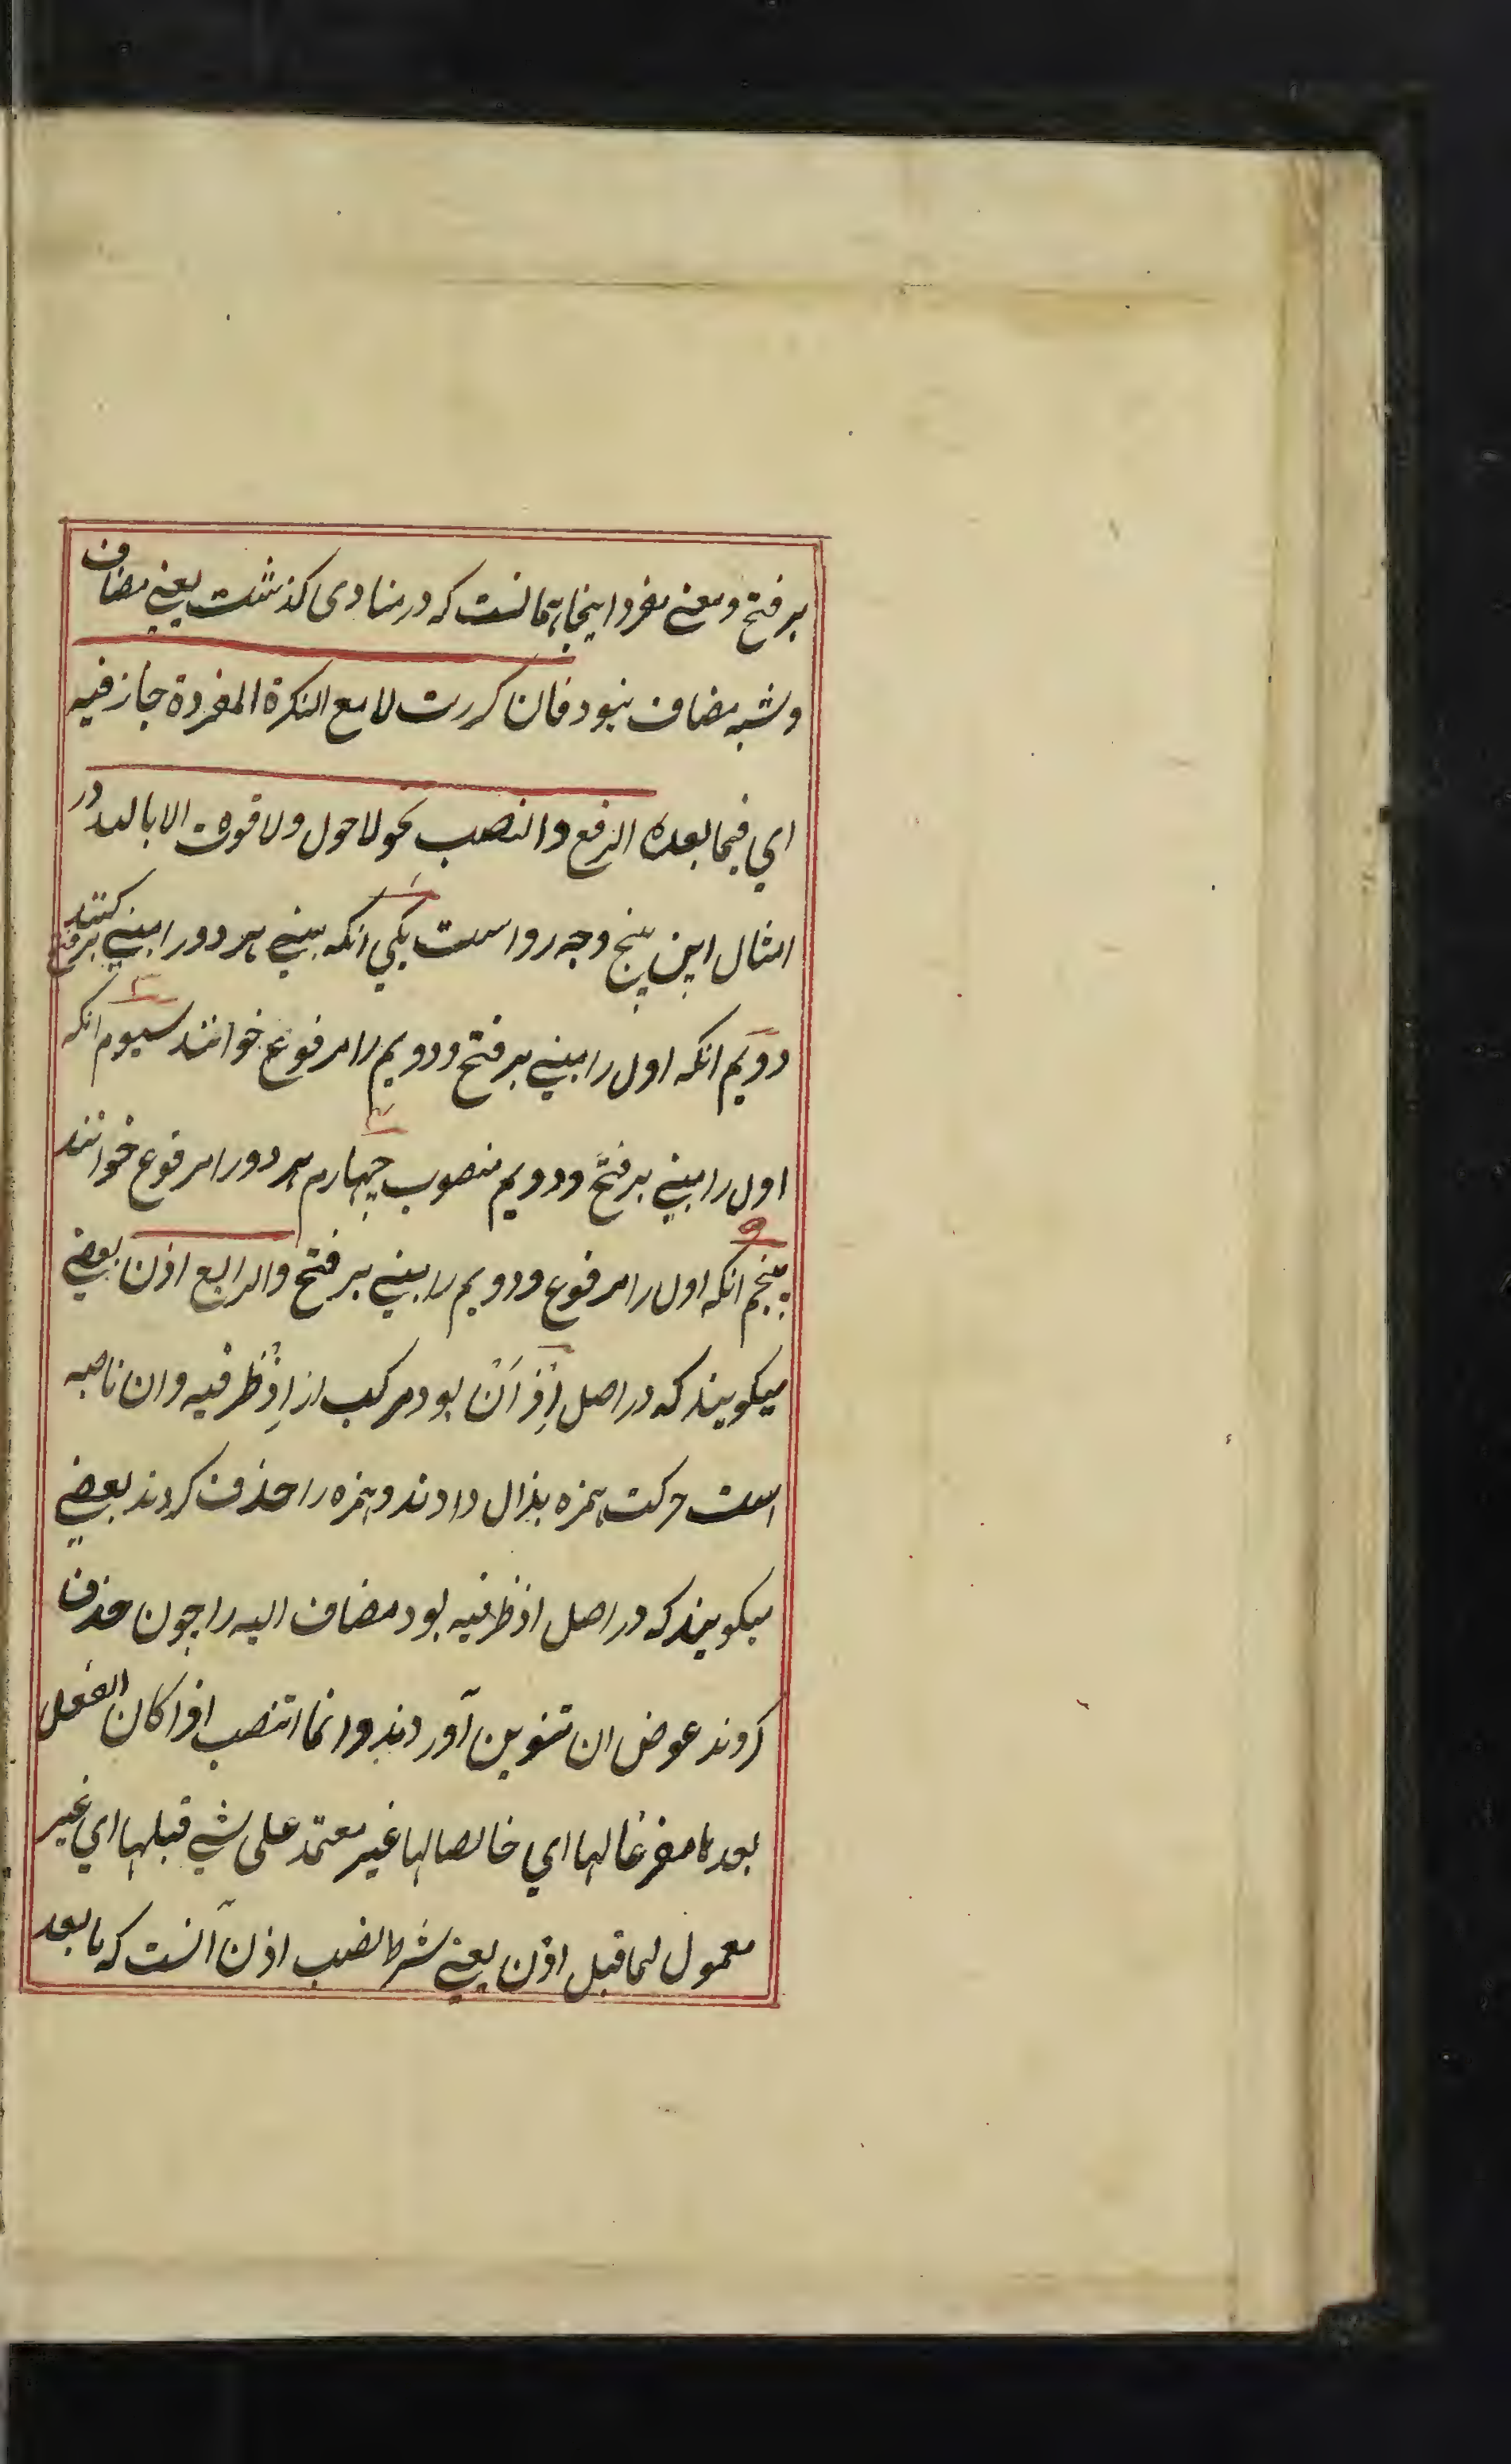 بر فتح و معنی مفرد اینجا همانست که در منادی گذشت یعنی مضاف
و شبه مضاف نبود فان کررت لا مع النکرة المفردة جاز فیه
ای فیما بعده الرفع والنصب نحو لا حول ولا قوة الا بالله در
امثال این پنج وجه رواست یکی آنکه مبنی هر دو را مبنی بر فتح کنند
دویم انکه اول را مبنی بر فتح و دویم را مرفوع خوانند سیوم انکه
اول را مبنی بر فتح و دویم منصوب چهارم هر دو را مرفوع خوانند
پنجم انکه اول را مرفوع و دویم را مبنی بر فتح والرابع اذن بعضی
میکویند که در اصل اِذْ اَنْ بود مرکب از اِذْ ظرفیه و ان ناصبه
است حرکت همزه بذال دادند و همزه را حذف کردند بعضی
میکویند که در اصل اذ ظرفیه بود مضاف الیه را چون حذف
کردند عوض ان تنوین آوردند وانما انتصب اذا کان الفعل
بعدها مفرغا لها ای خالصا لها غیر معتمد علی شیء قبلها ای غیر
معمول لما قبل اذن یعنی شرط نصب اذن آنست که ما بعد